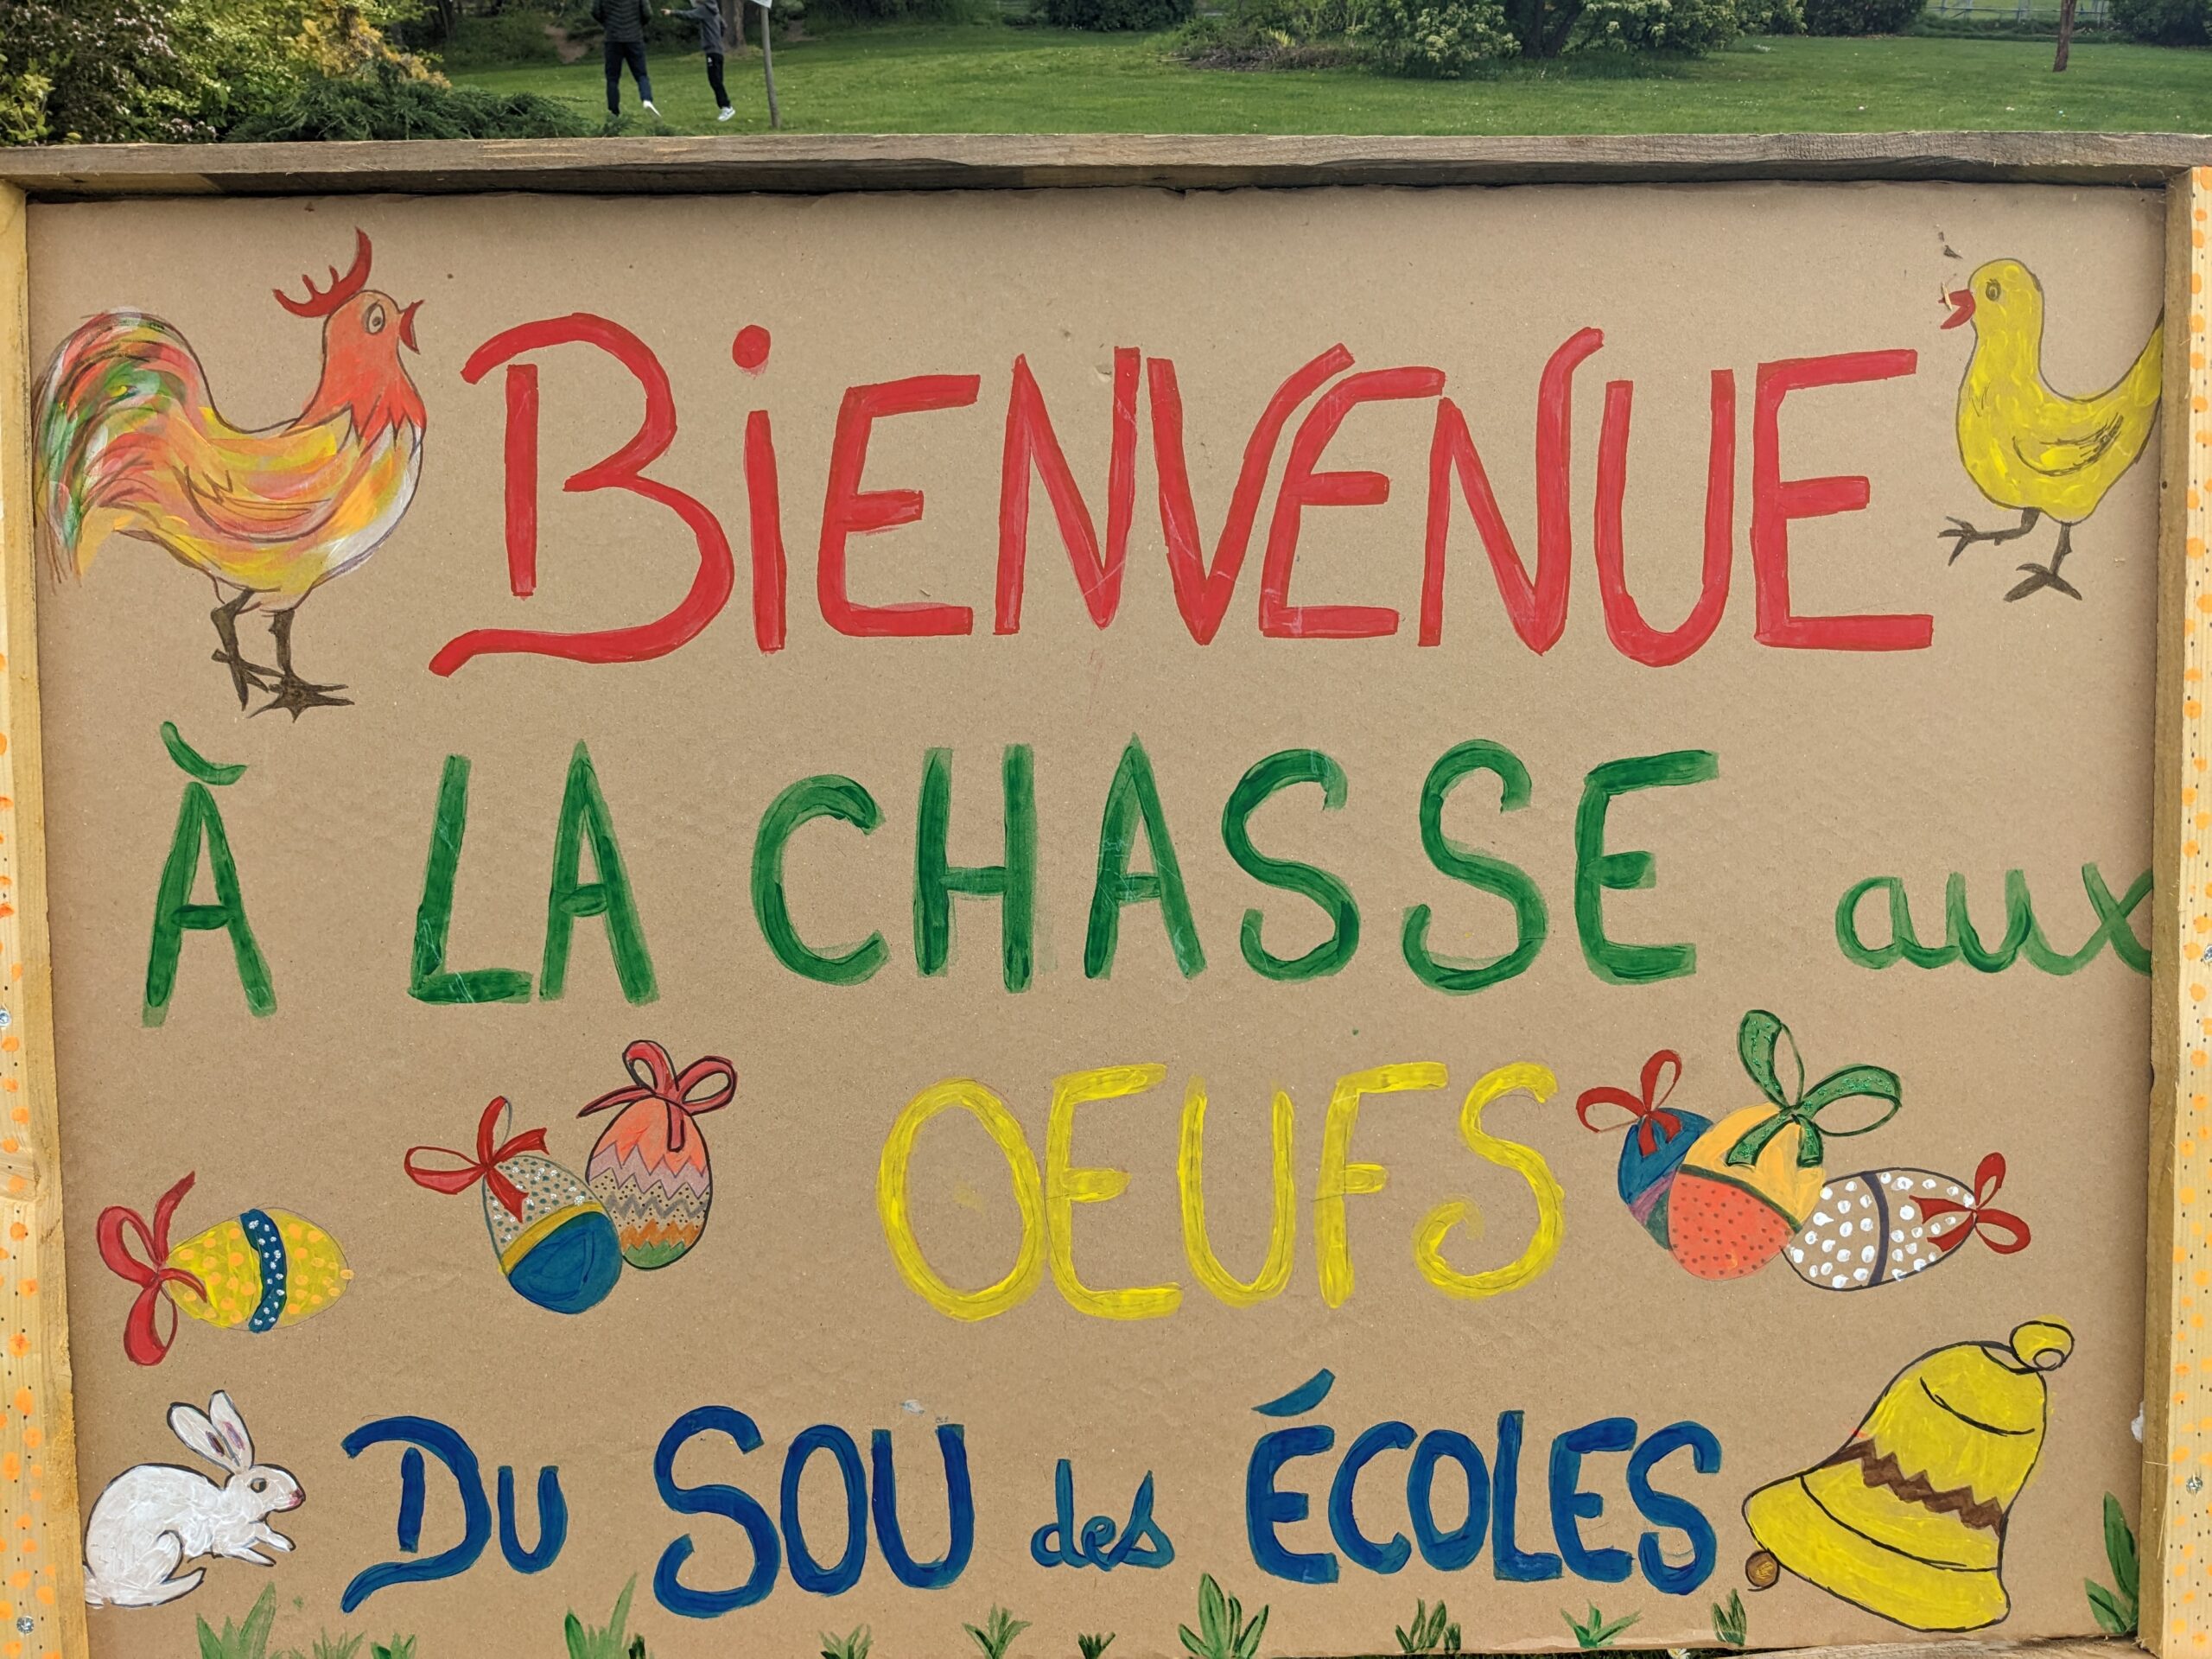 BiENVENUE
À LA CHASSE aux
OEUFS
DU SOU des ÉCOLES